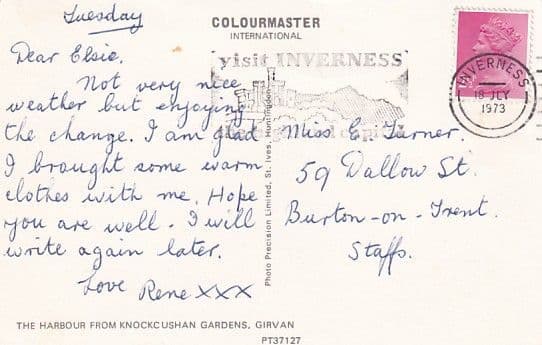 Tuesday
Dear Elsie.
Not very nice
weather but enjoying
the change. I am glad
I brought some warm
clothes with me. Hope
you are well. I will
write again later.
Love Rene xxx
THE HARBOUR FROM KNOCKCUSHAN GARDENS, GIRVAN
COLOURMASTER
INTERNATIONAL
Photo Precision Limited, St. Ives, Huntingdon
PT37127
visit INVERNESS
INVERNESS
18 JLY
1973
Miss E. Turner.
59 Dallow St.
Burton-on-Trent.
Staffs.